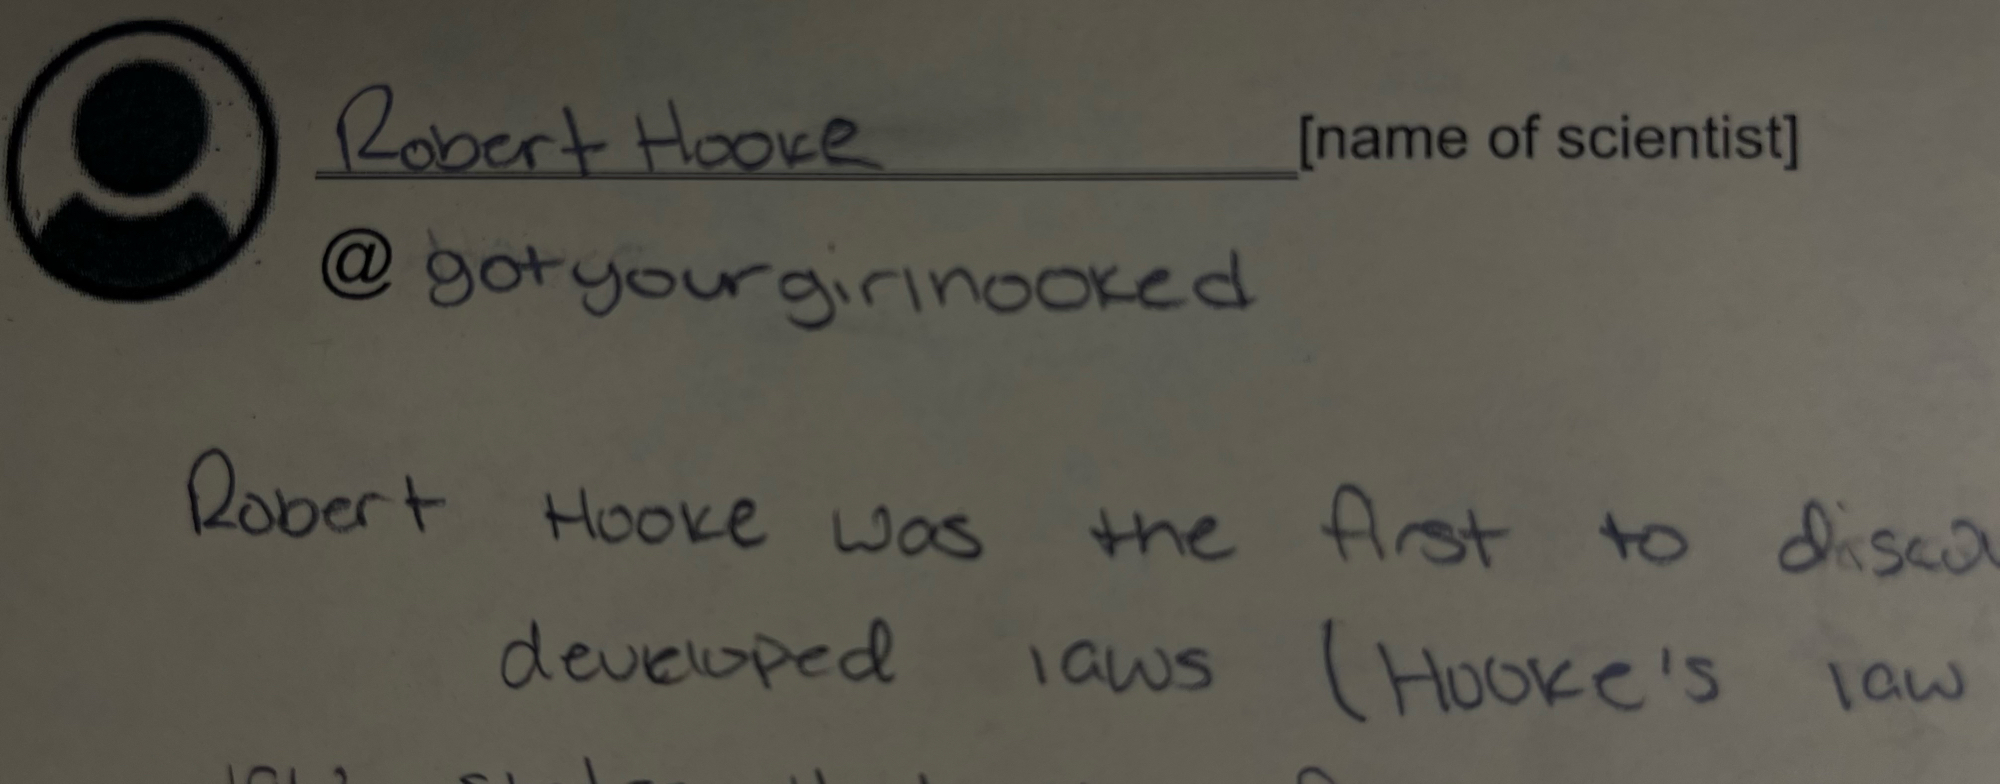 Robert Hooke [name of scientist]
@ gotyourgirlhooked
Robert Hooke was the first to
developed laws (Hooke's law